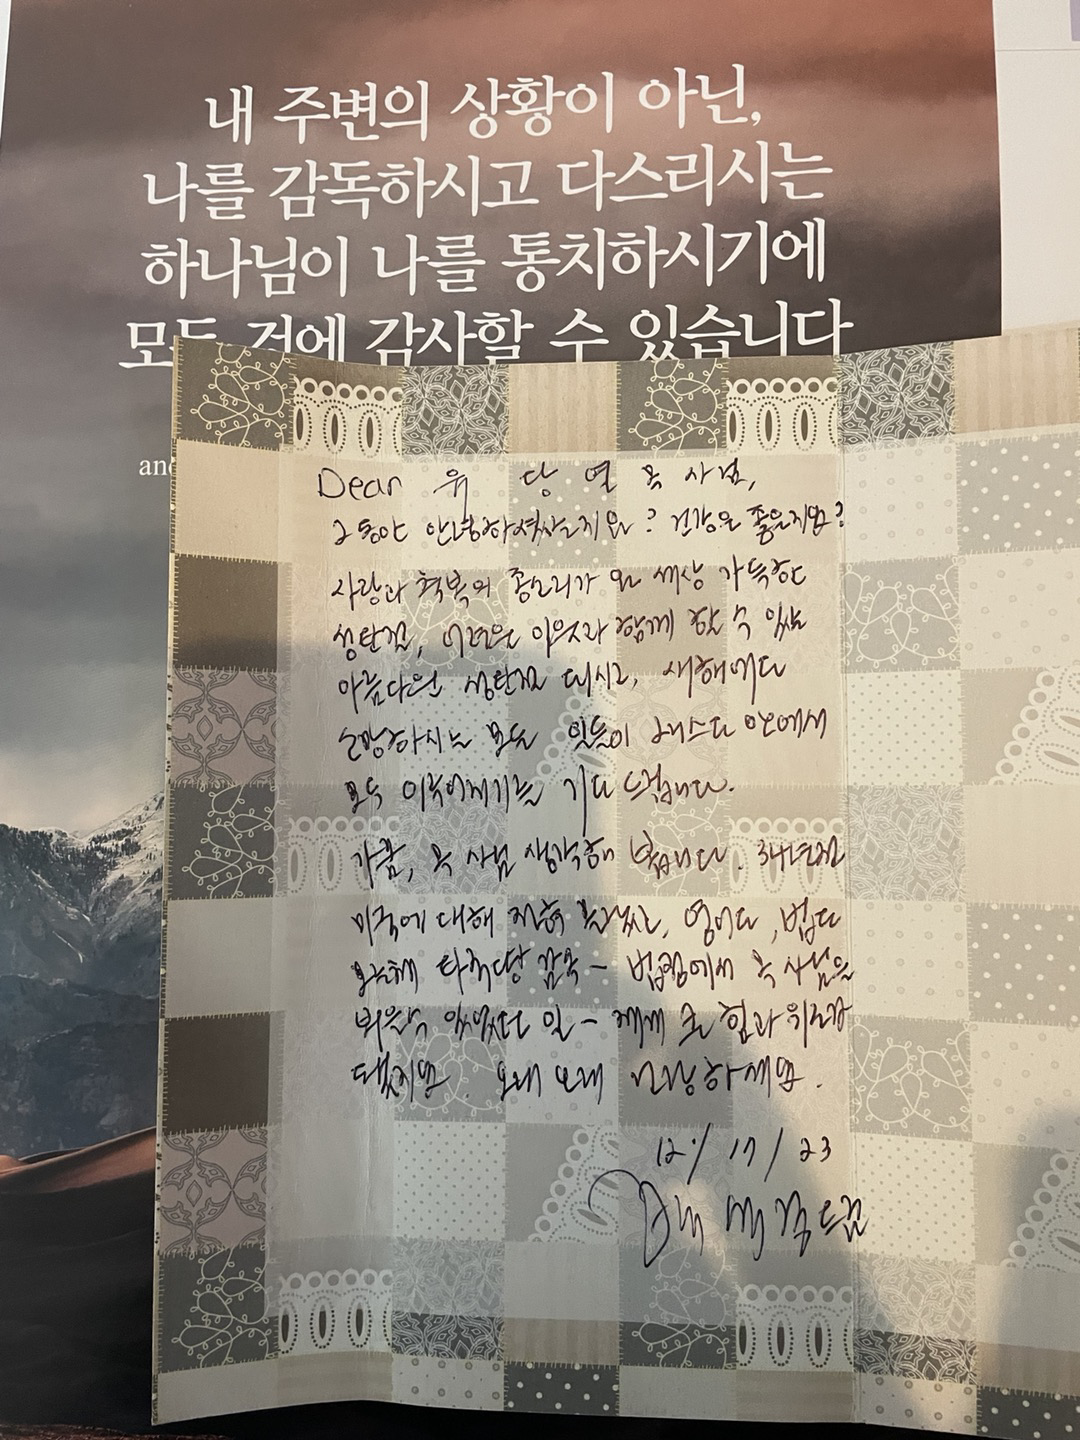 내 주변의 상황이 아닌,
나를 감독하시고 다스리시는
하나님이 나를 통치하시기에
모든 것에 감사할 수 있습니다
and
Dear 유 당 열 목 사님,
그동안 안녕하셨는지요? 건강은 좋은지요?
사랑과 축복의 종소리가 온 세상 가득한
성탄절, 어려운 이웃과 함께 할 수 있는
아름다운 성탄절 되시고, 새해에도
소망하시는 모든 일들이 안에서
모두 이루어지기를 기도 드립니다.
가끔, 목 사님 생각해 봅니다. 34년전
미국에 대해 전혀 영어도, 법도
모른채 감옥 - 법정에서 목 사님을
뵈올수 있었던 일 - 제게 큰 힘과 위로가
됐지요. 오래 오래 건강하세요.
12/17/23
드림